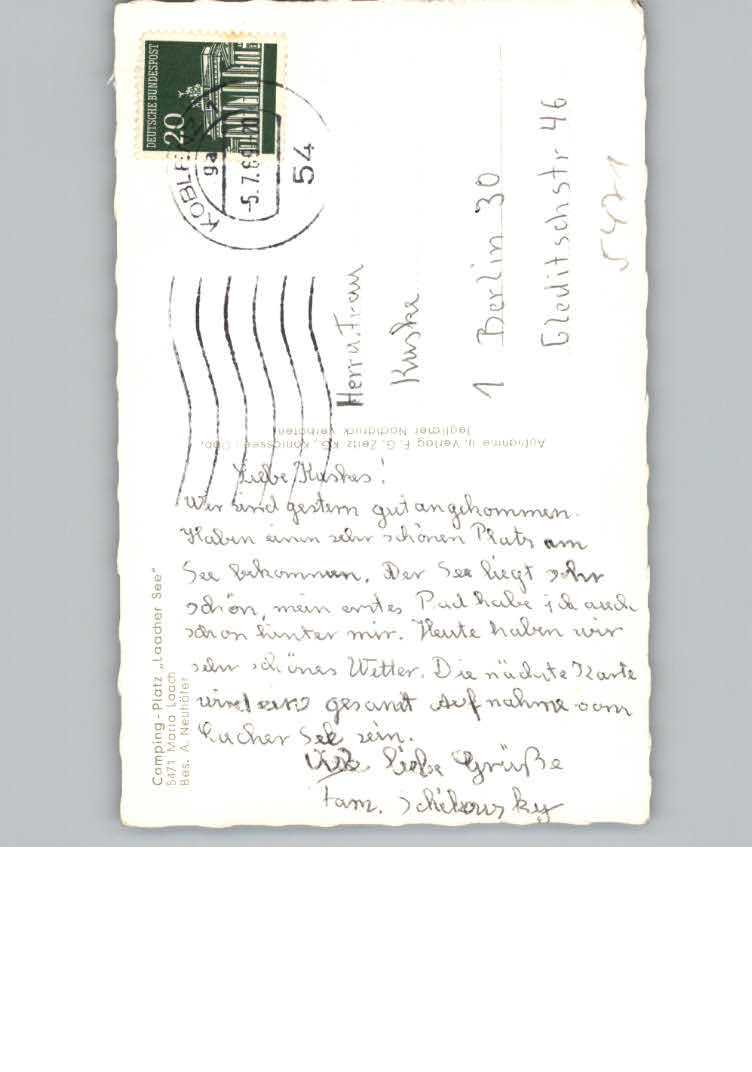 Camping-Platz „Laacher See"
5471 Maria Laach
Bes. A. Neuhöfer
Liebe Kuskes!
Wir sind gestern gut angekommen.
Haben einen sehr schönen Platz am
See bekommen. Der See liegt sehr
schön, mein erstes Bad habe ich auch
schon hinter mir. Heute haben wir
sehr schönes Wetter. Die nächste Karte
wird eine gesamt Aufnahme vom
Lacher See sein.
Viele liebe Grüße
Fam. Schikowsky
Aufnahme u. Verlag F. G. Zeitz KG., Königssee / Obb.
Jeglicher Nachdruck verboten
DEUTSCHE BUNDESPOST
20
KOBLENZ
ga
-5.7.69-20
54
Herr u. Frau
Kuske
1 Berlin 30
Gleditschstr 46
5471